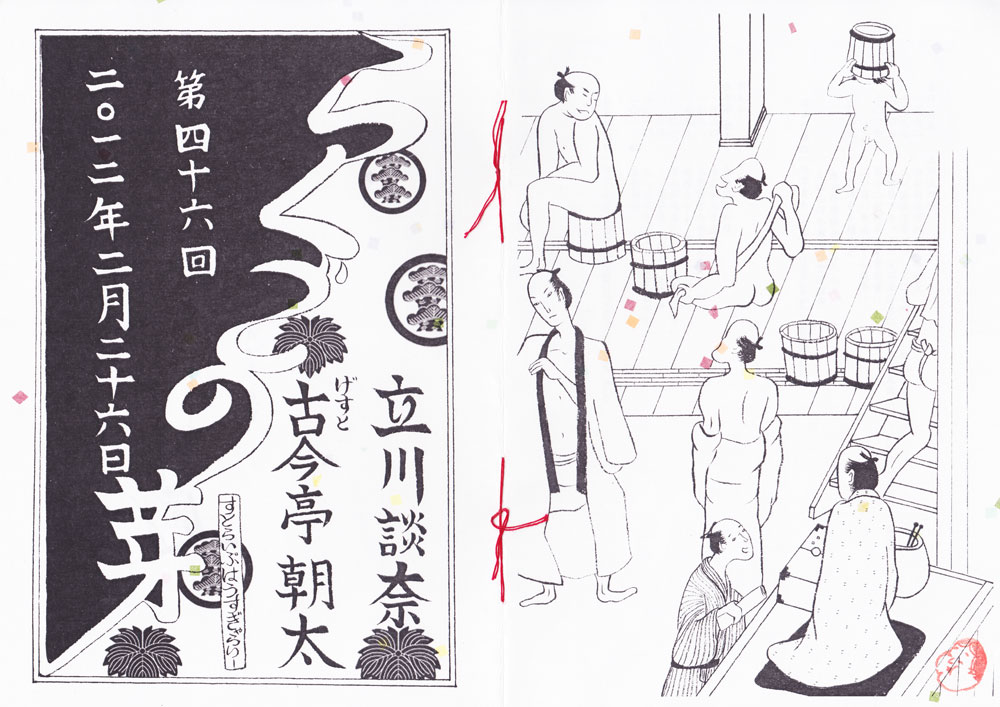 立川談奈
げすと
古今亭 朝太
すとらいぷはうすぎゃらりー
らくごの芽
第四十六回
二〇一二年二月二十六日